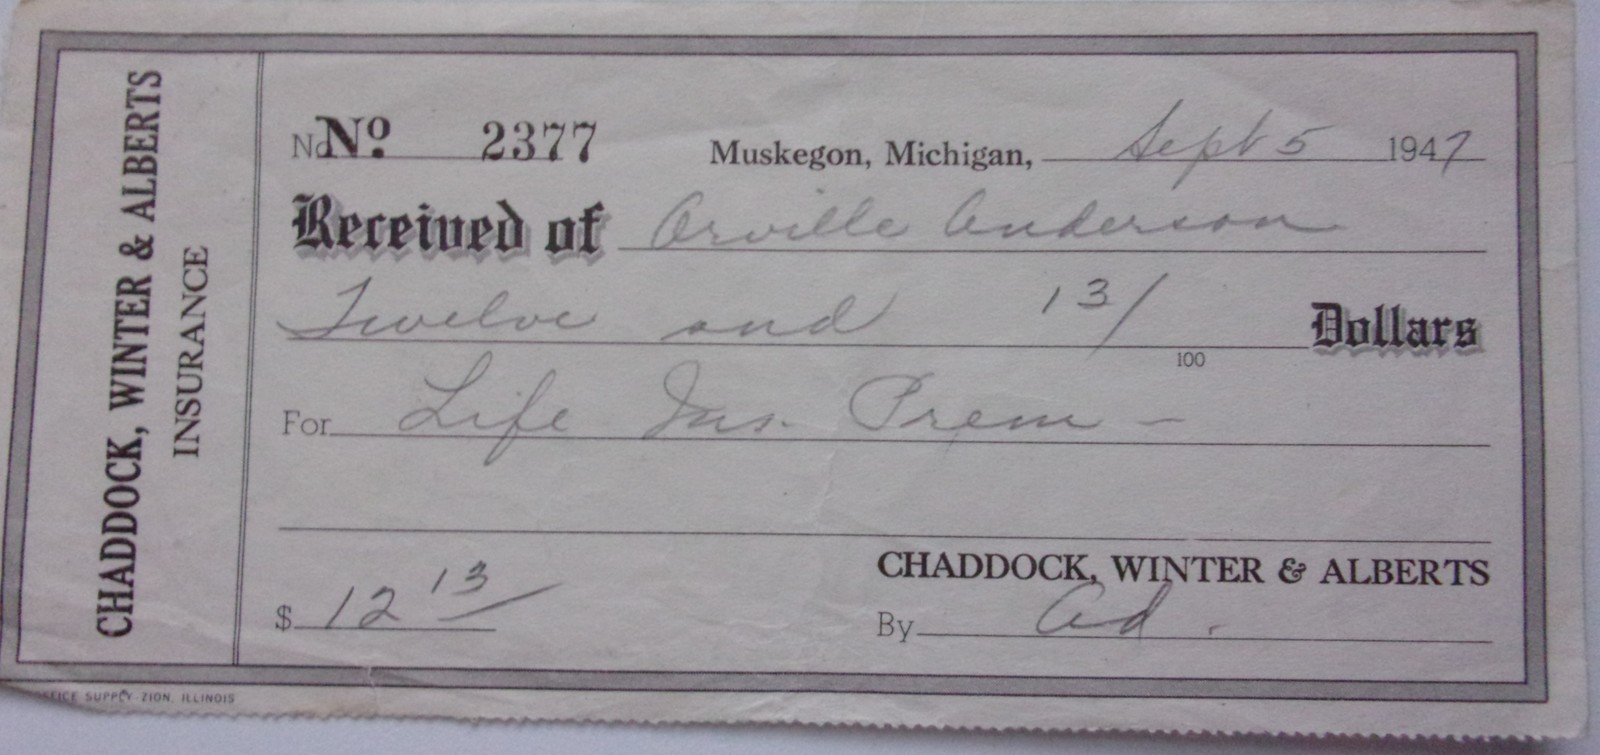 CHADDOCK, WINTER & ALBERTS
INSURANCE
No Nº 2377 Muskegon, Michigan, Sept 5 1947
Received of Orville Anderson
Twelve and 13/100 Dollars
For Life Ins. Prem -
CHADDOCK, WINTER & ALBERTS
$ 12 13
By ad.
SUPPLY - ZION, ILLINOIS